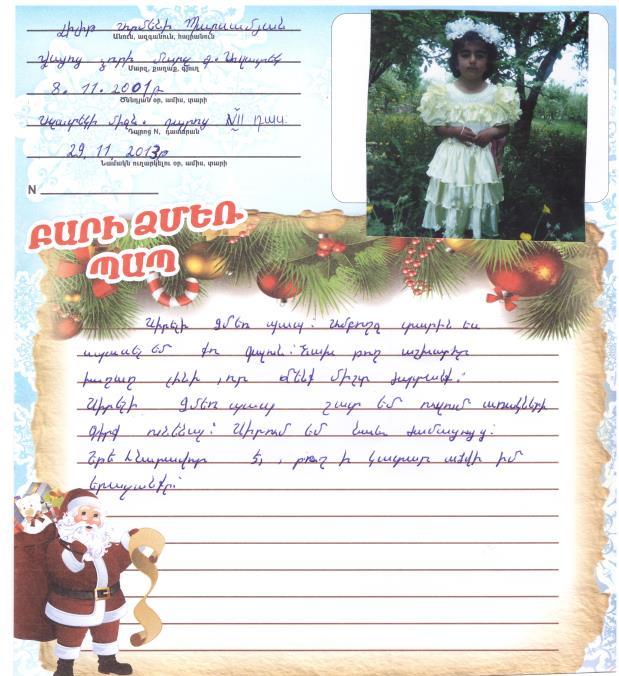 Լիլիթ Արմենի Պարսամյան
Անուն, ազգանուն, հայրանուն
Վայոց ձորի մարզ գ.
Մարզ, քաղաք, գյուղ
8. 11. 2001թ
Ծննդյան օր, ամիս, տարի
միջն. դպրոց VII դաս.
Դպրոց N, դասարան
29. 11 2013թ
Նամակն ուղարկելու օր, ամիս, տարի
N
ԲԱՐԻ ՁՄԵՌ
ՊԱՊ
Սիրելի Ձմեռ պապ: Ամբողջ տարին ես
սպասել եմ քո գալուն: Նախ թող աշխարհը
խաղաղ լինի, որ մենք միշտ
Սիրելի Ձմեռ պապ շատ եմ ուզում առակների
գիրք ունենալ: Ուզում եմ նաև ժամացույց:
Եթե հնարավոր է, թող ի կատար ածվի իմ
երազանքը: